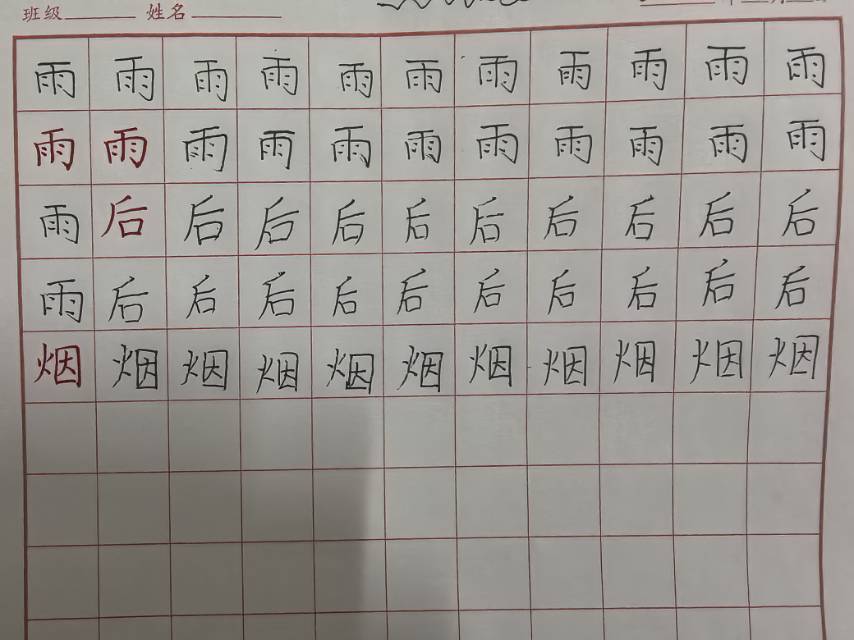 班级 姓名
雨雨雨雨雨雨雨雨雨雨雨
雨雨雨雨雨雨雨雨雨雨雨
雨后后后后后后后后后后
雨后后后后后后后后后后
烟烟烟烟烟烟烟烟烟烟烟